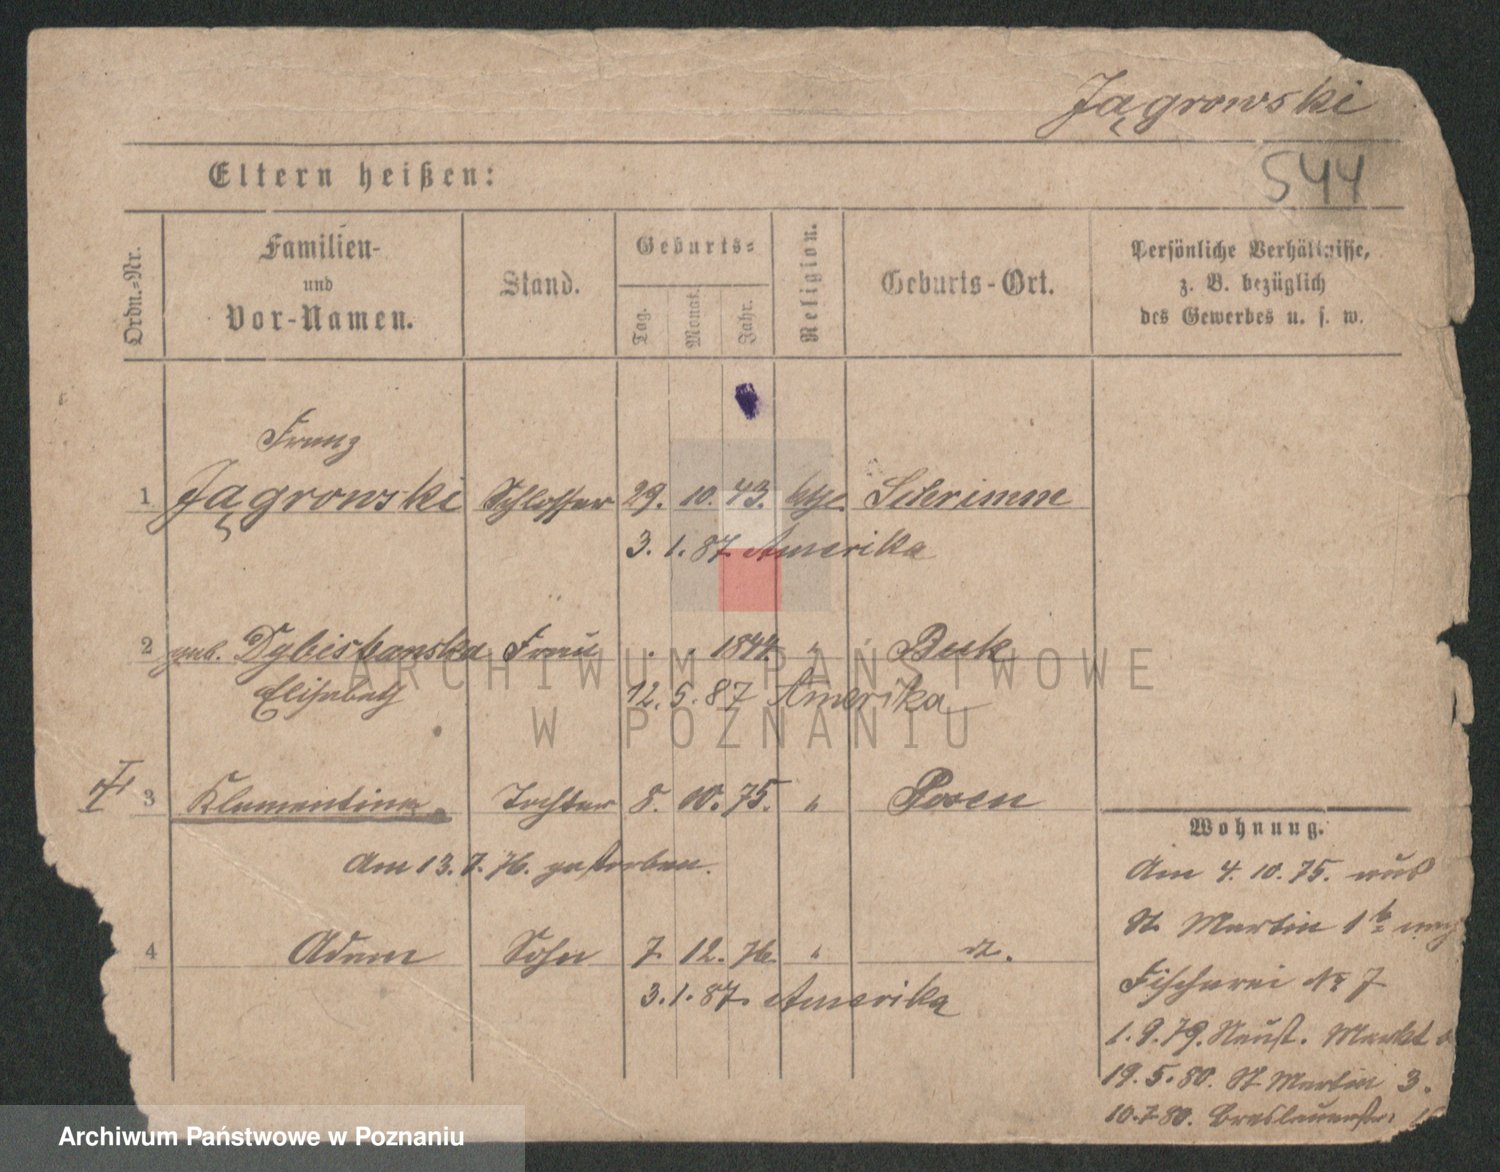 Jągrowski
544
Eltern heißen:
Ordn.-Nr.
Familien-
und
Vor-Namen.
Stand.
Geburts-
Tag.
Monat.
Jahr.
Religion.
Geburts-Ort.
Persönliche Verhältnisse,
z. B. bezüglich
des Gewerbes u. s. w.
Franz
1 Jągrowski Schlosser 29. 10. 43. kth. Schrimm
3. 1. 87. Amerika
2 geb. Frau . . 1844. " Buk
Elisabeth 12. 5. 87 Amerika
3 Klementina Tochter 8. 10. 75. " Posen
Am 13. 7. 76. gestorben.
4 Adam Sohn 7. 12. 76. " d.
3. 1. 87. Amerika
Wohnung.
Am 4. 10. 75. aus
St. Martin 1b nach
Fischerei No 7
1. 9. 79. Neust. Markt
19. 5. 80. St Martin 3.
10. 7. 80. Breslauerstr.
ARCHIWUM PAŃSTWOWE
W POZNANIU
Archiwum Państwowe w Poznaniu